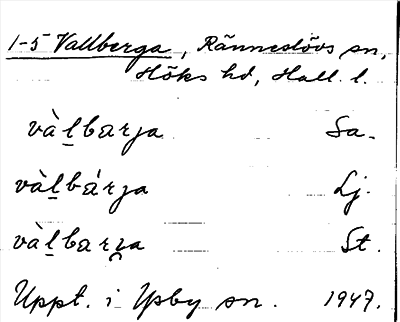 1-5 Vallberga, Ränneslövs sn,
Höks hd, Hall. l.
vàl̲barja Sa.
vàl̲bárja Lj.
vàl̲barja St.
Uppt. i Ysby sn. 1947.